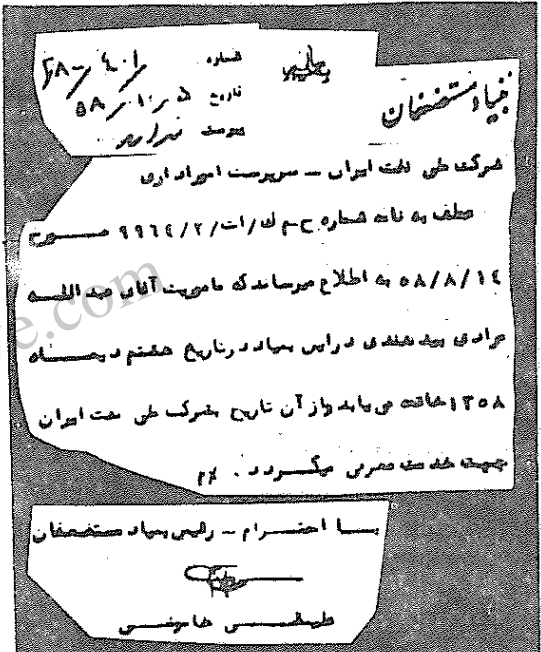 بنیاد مستضعفان
شماره
تاریخ ۵ ر ۱۰ ر ۵۸
پیوست ندارد
شرکت ملی نفت ایران – سرپرست امور اداری
عطف به نامه شماره ح م ك/ات/۲/۹۹۶٤ مـــورخ
۵۸/۸/۱٤ به اطلاع میرساند که ماموریت آقای عبد اللـــه
مرادی بید هندی در این بنیاد در تاریخ هشتم دیمـــاه
۱۳۵۸ خاتمه می یابد و از آن تاریخ بشرکت ملی نفت ایران
جهت خدمت معرفی میگـردد .
بـــا احتـــرام – رئیس بنیاد مستضعفان
علینقـــی خاموشـــی
e.com